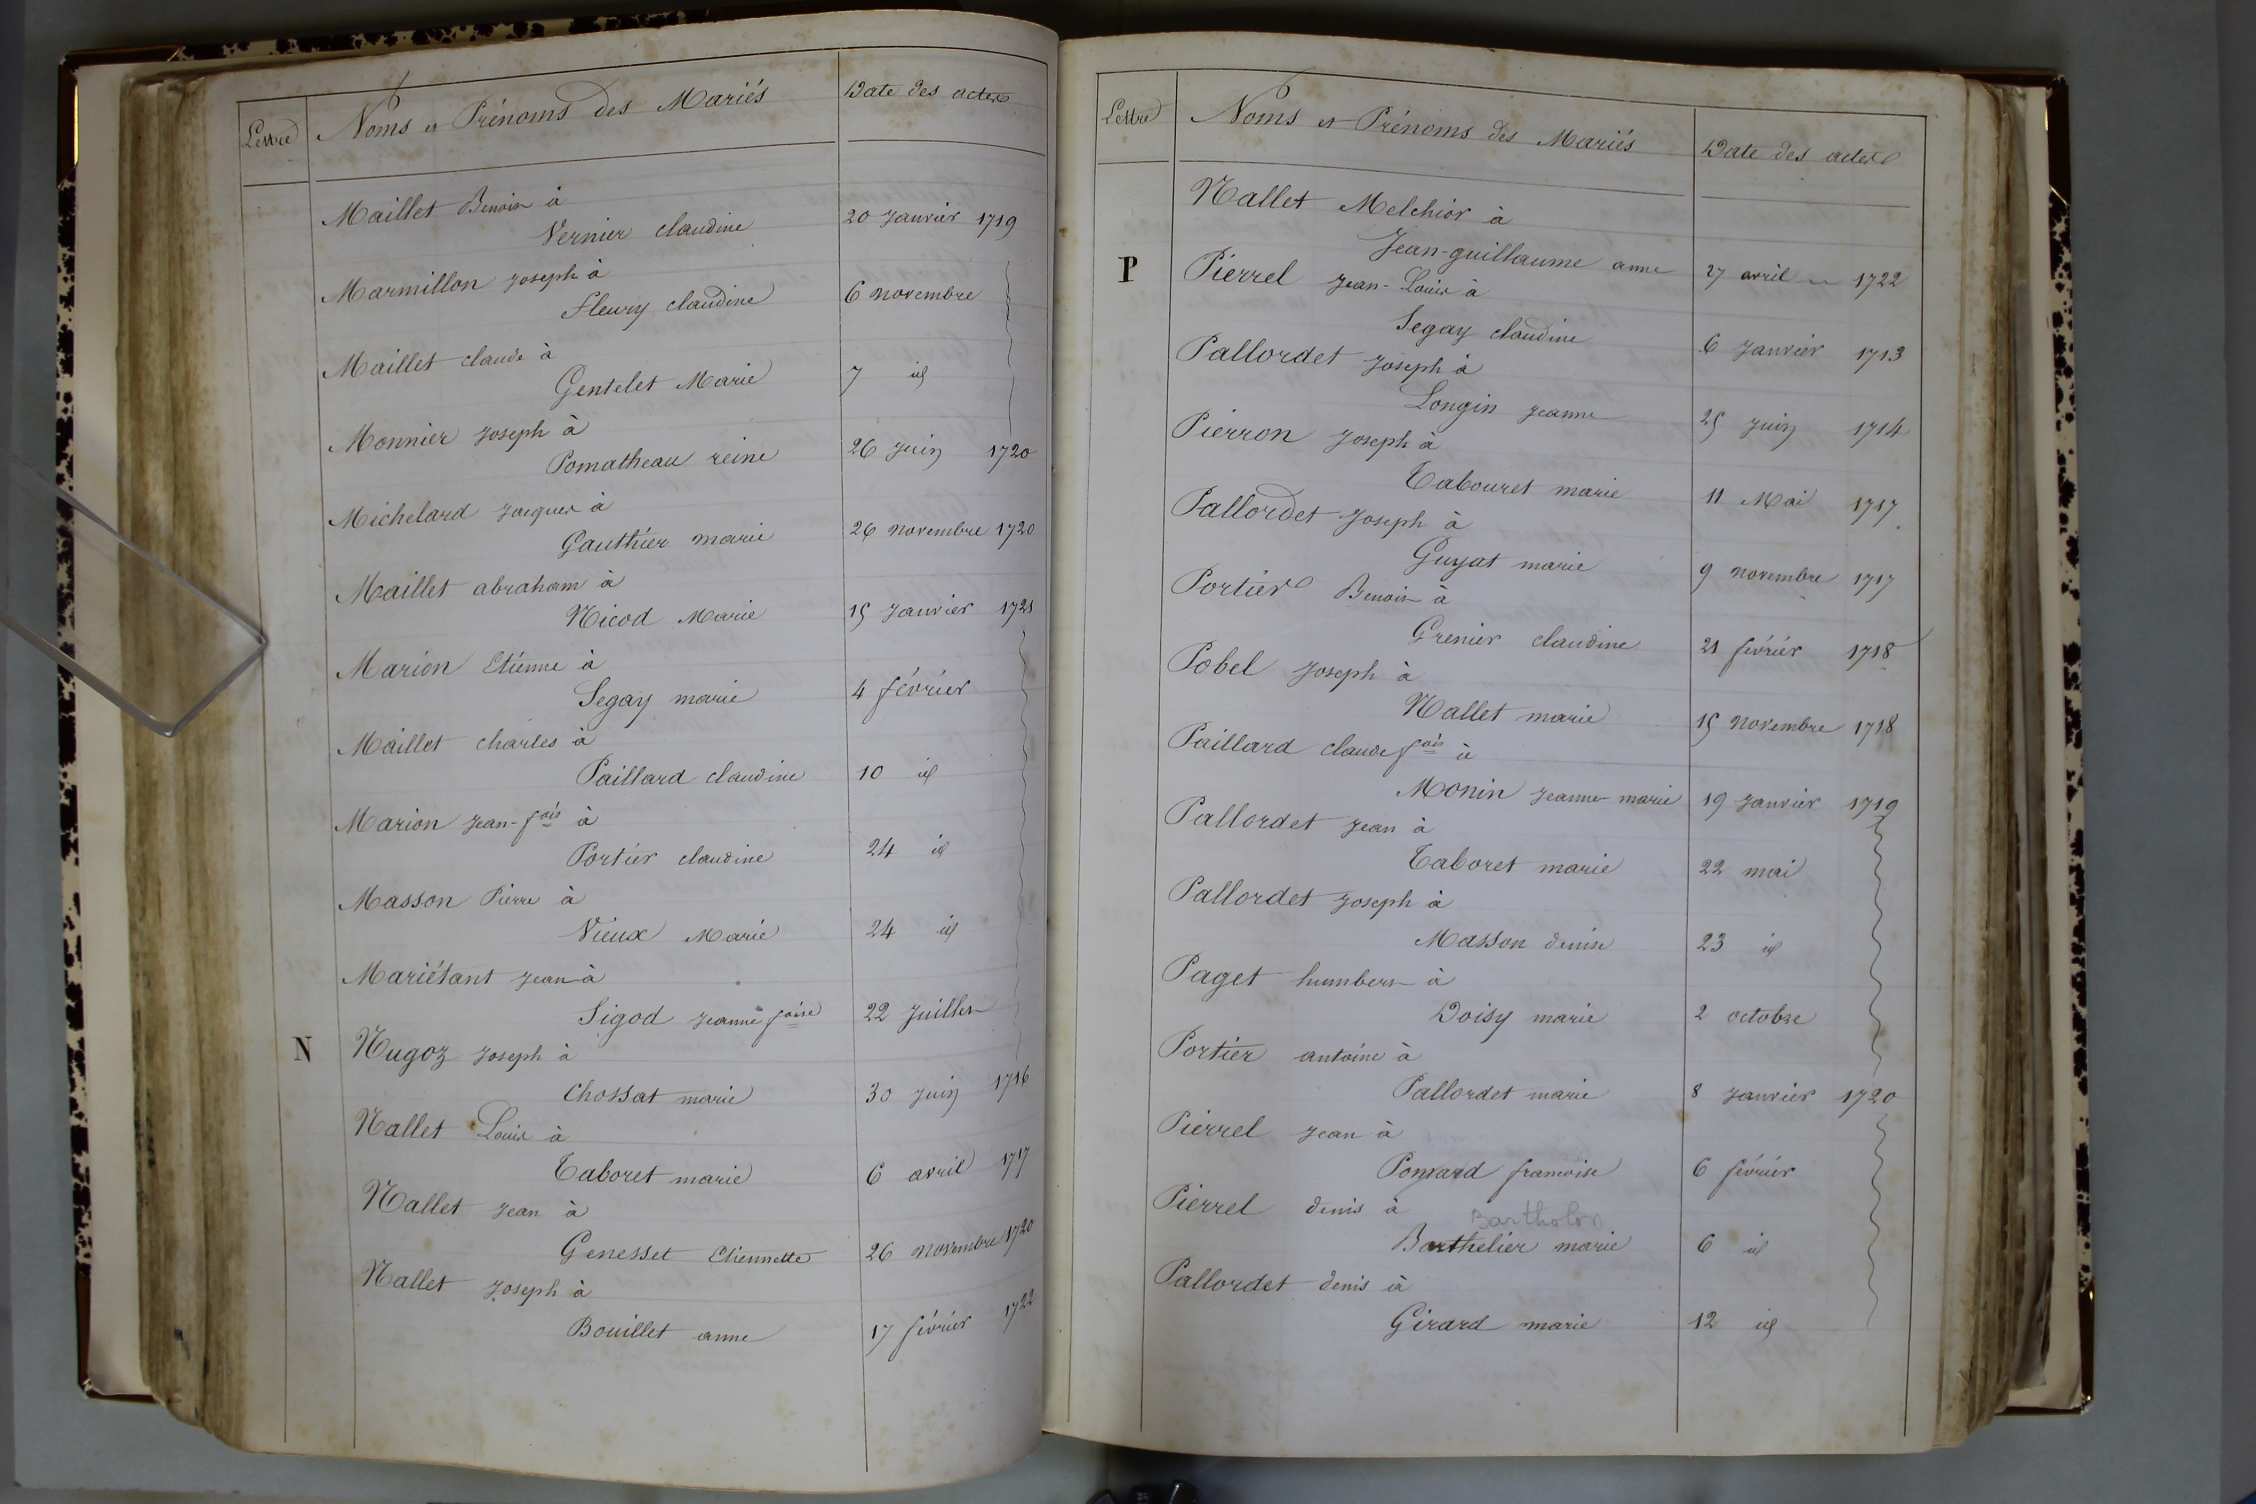 Lettre Noms et Prénoms des Mariés Date des actes
Maillet Benoit à
Vernier claudine 20 Janvier 1719
Marmillon Joseph à
fleury claudine 6 novembre
Maillet claude à
Gentelet Marie 7 id
Monnier Joseph à
Pomatheau reine 26 Juin 1720
Michelard Jacques à
Gauthier marie 26 novembre 1720
Maillet abraham à
Nicod Marie 15 Janvier 1721
Marion Etienne à
Segay marie 4 février
Maillet charles à
Paillard claudine 10 id
Marion Jean-fois à
Portier claudine 24 id
Masson Pierre à
Vieux Marie 24 id
Mariétant Jean à
Sigod Jeanne foise 22 Juillet
N Nugoz Joseph à
Chossat marie 30 Juin 1716
Nallet Louis à
Taboret marie 6 avril 1717
Nallet Jean à
Genesset Etiennette 26 novembre 1720
Nallet Joseph à
Bouillet anne 17 février 1722
Lettre Noms et Prénoms des Mariés Date des actes
Nallet Melchior à
Jean-guillaume anne 27 avril 1722
P Pierrel Jean-Louis à
Segay claudine 6 Janvier 1713
Pallordet Joseph à
Longin Jeanne 25 Juin 1714
Pierron Joseph à
Tabouret marie 11 Mai 1717
Pallordet Joseph à
Guyat marie 9 novembre 1717
Portier Benoit à
Grenier claudine 21 février 1718
Pobel Joseph à
Nallet marie 15 novembre 1718
Paillard claude fois à
Monin Jeanne-marie 19 Janvier 1719
Pallordet Jean à
Taboret marie 22 mai
Pallordet Joseph à
Masson denise 23 id
Paget humbert à
Doisy marie 2 octobre
Portier antoine à
Pallordet marie 8 Janvier 1720
Pierrel Jean à
françoise 6 février
Pierrel denis à
Bartholon
Barthelier marie 6 id
Pallordet denis à
Girard marie 12 id